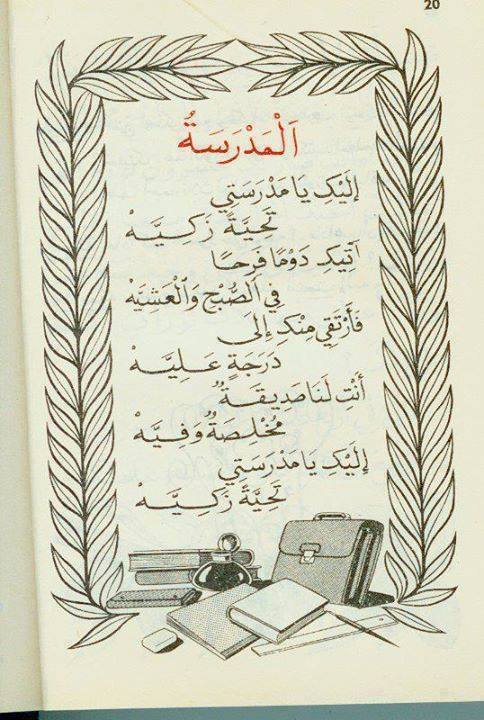 20
اَلْمَدْرَسَةُ
إِلَيْكِ يَا مَدْرَسَتِي
تَحِيَّةً زَكِيَّهْ
آتِيكِ دَوْمًا فَرِحًا
فِي الصُّبْحِ وَالْعَشِيَّهْ
فَأَرْتَقِي مِنْكِ إِلَى
دَرَجَةٍ عَلِيَّهْ
أَنْتِ لَنَا صَدِيقَةٌ
مُخْلِصَةٌ وَفِيَّهْ
إِلَيْكِ يَا مَدْرَسَتِي
تَحِيَّةً زَكِيَّهْ